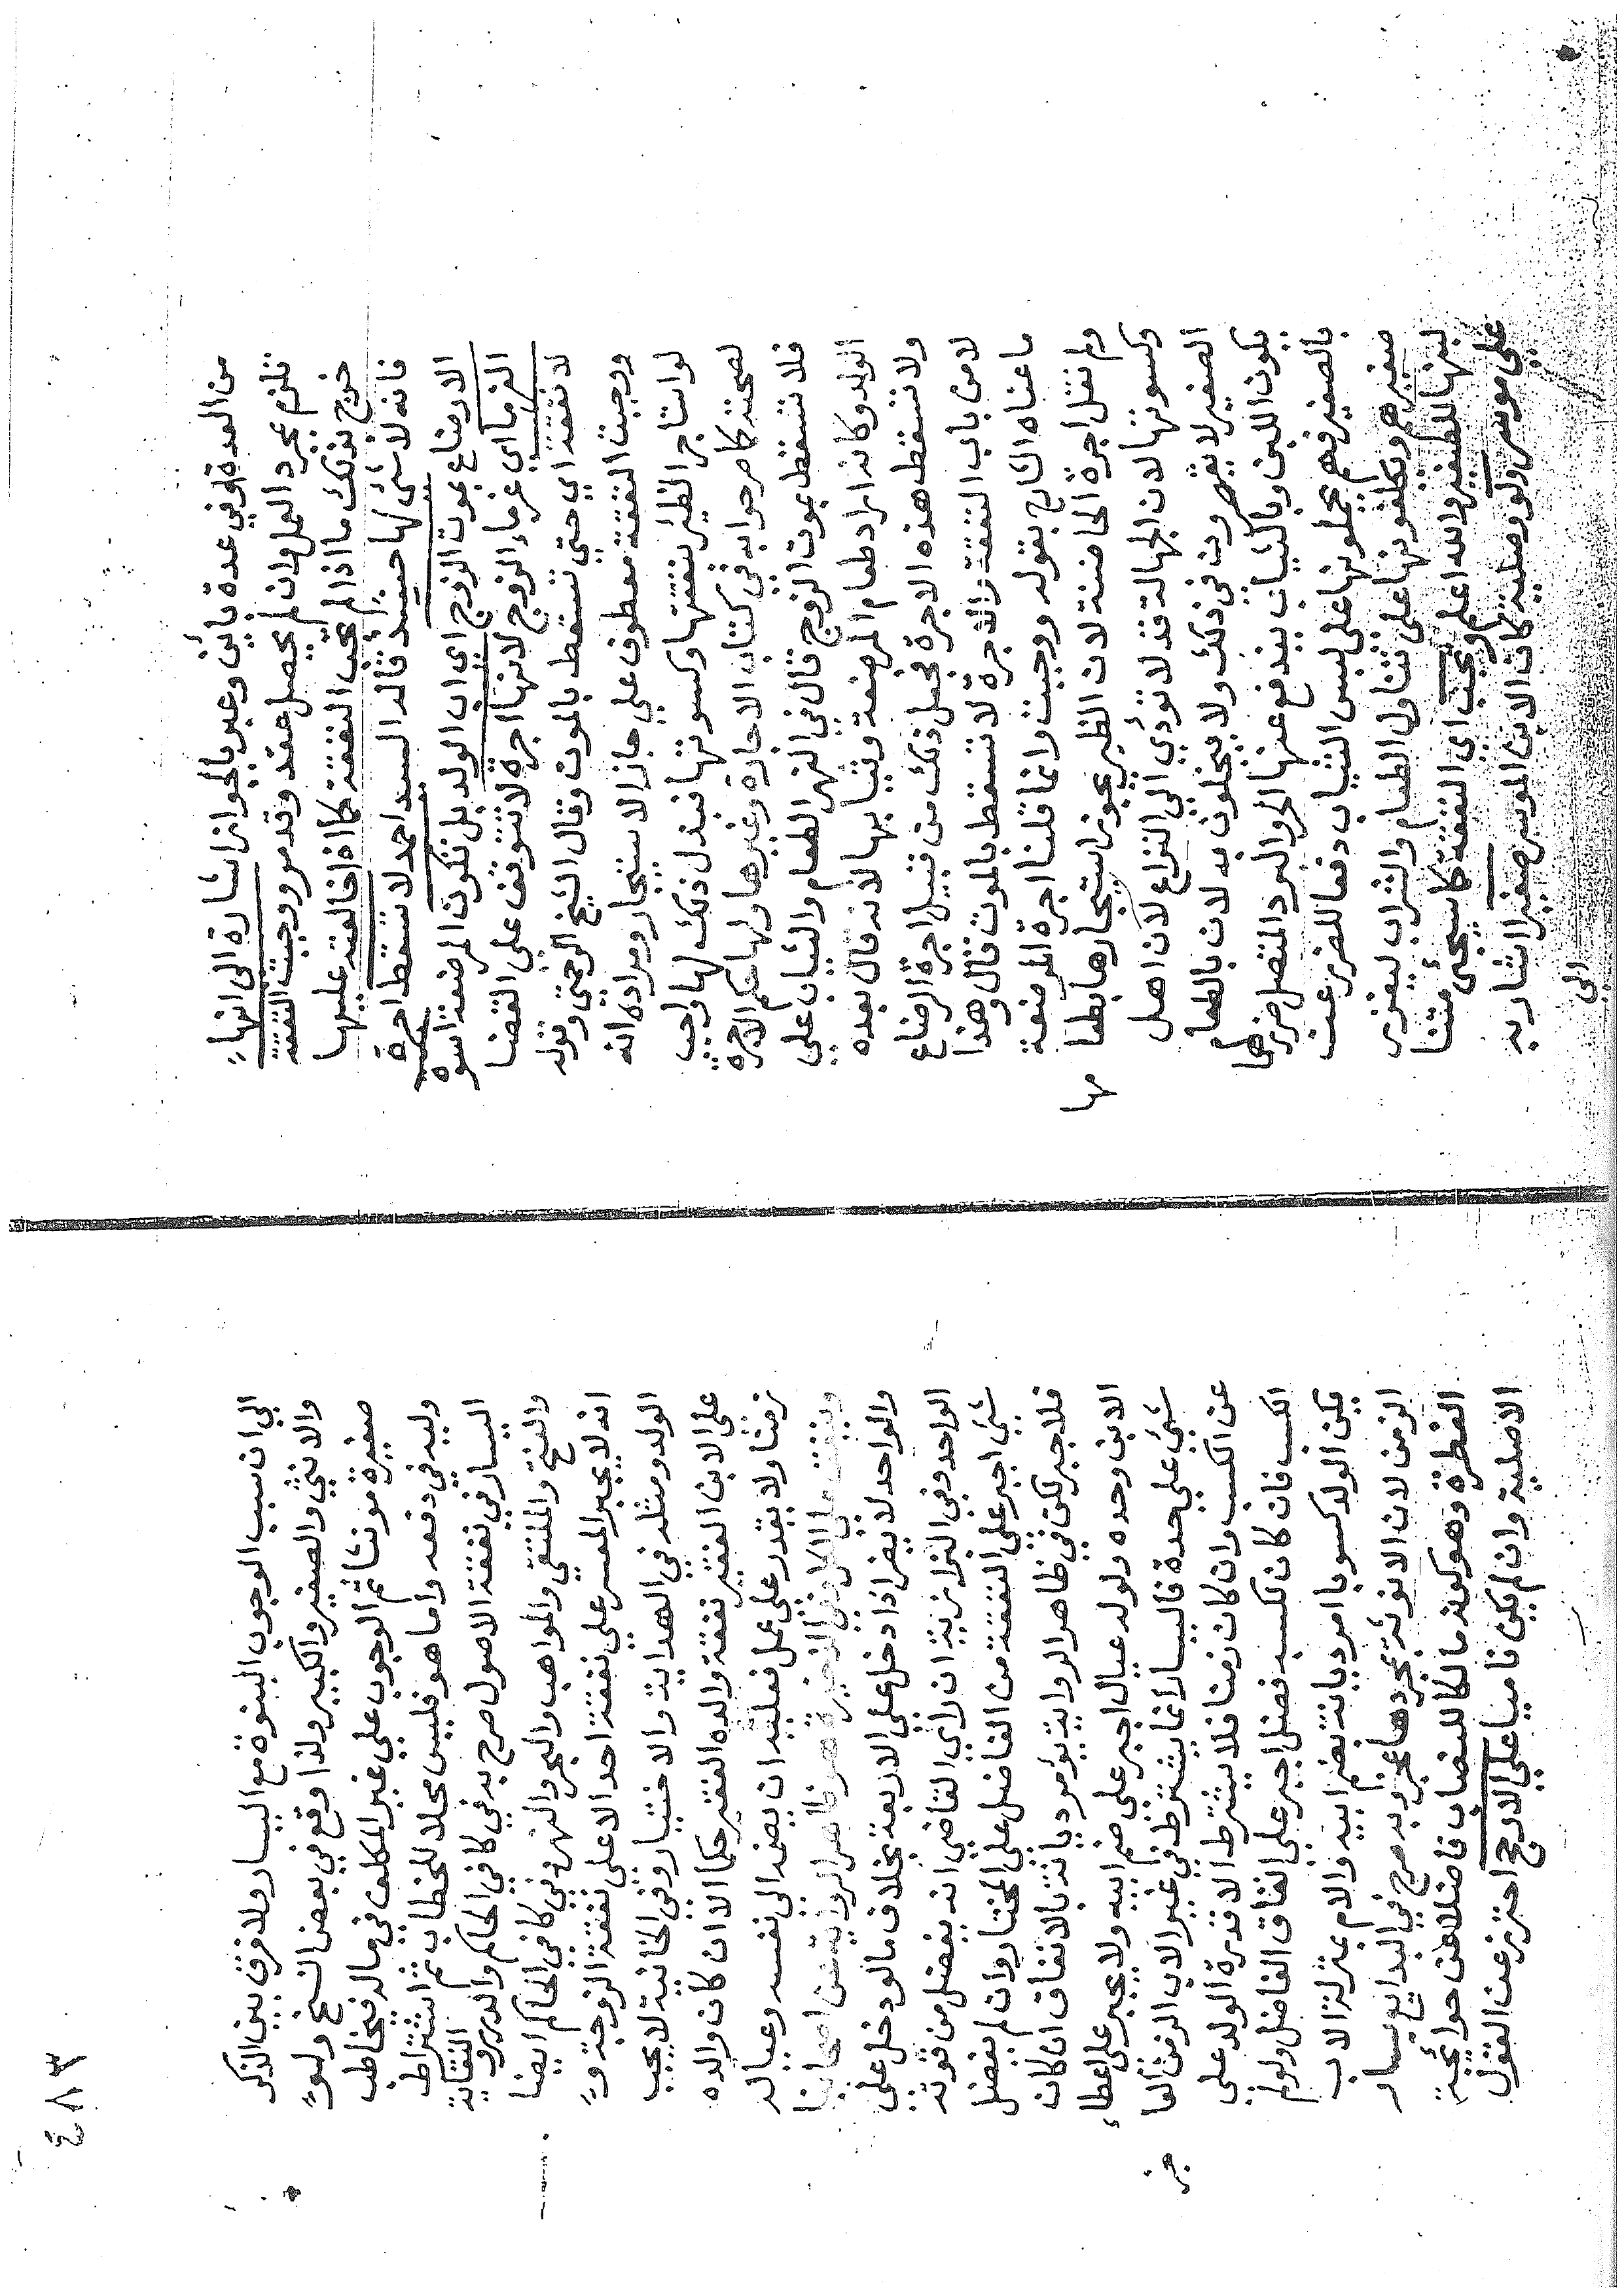 من العدة او في عدة بائن وعبر بالجواز اشارة الى انها
تلزم بمجرد العمل وان لم يحصل عقد وقد مر ووجبت النفقة
خرج بذلك ما اذا لم تجب النفقة كما اذا خالعته عليها
فانه لا شئ لها حينئذ قاله السيد احمد لا تسقط اجرة
الارضاع بموت الزوج اى اب الولد بل تكون المرضعة اسوة
الغرما اي غرماء الزوج لانها اجرة لا تتوقف على القضا
لا نفقة اي حتى تسقط بالموت وقال الشيخ الرحمتي وقوله
ووجبت النفقة معطوف علي جاز الاستيجار ومراده انه
لو استاجر الظئر بنفقتها وكسوتها فبذل ذلك لها واجب
لصحته كما مر جوابه في كتاب الاجارة وغيرها ولها حكم الاجرة
فلا تسقط بموت الزوج قال في النهر الطعام والثياب علي
الولد وكانه اراد طعام المرضعة وثيابها لانه قال بعده
ولا تسقط هذه الاجرة فجعل ذلك من قبيل اجرة الرضاع
لا من باب النفقة والاجرة لا تسقط بالموت قال وهذا
ما عناه الشارح بقوله ووجبت وانما قلنا اجرة المرضعة
ولم نقل اجرة الحاضنة لان الظير يجوز استيجارها بطعا
مها
وكسوتها لان الجهالة قد لا تؤدي الي النزاع لان اهل
الصغير لا يقصرون في ذلك ولا يبخلون به لان بالطعام
يكون اللبن وبالثياب يندفع عنها الحر والبرد المتصل ضررهما
بالصغير فهم يحملونها على لبس الثياب دفعا للضرر عن
صغيرهم ويكلفونها على تناول الطعام والشراب ليغزر
لبنها للصغير والله اعلم وتجب اي النفقة كما سيجئ متنا
علي موسر ولو وصلية كان الابن الموسر صغيرا اشار به
الي
٤٨٣
الي ان سبب الوجوب البنوة مع اليسار ولا فرق بين الذكر
والانثي والصغير والكبير ولذا وقع في بعض النسخ ولو
صغيرة مونثا ثم الوجوب علي غير المكلف في ماله فيخاطب
وليه في دفعه واما هو فليس محلا للخطاب ثم اشتراط
اليسار في نفقة الاصول صرح به في كافي الحاكم والدرر والنقاية
والفتح والملتقى والمواهب والبحر والنهر وفي كافي الحاكم ايضا
انه لا يجبر المعسر علي نفقة احد الا على نفقة الزوجة و
الولد ومثله في الهداية والاختيار وفي الخانية لا يجب
على الابن الفقير نفقة والده الفقير حكما الا ان كان والده
زمنا ولا يقدر على عمل فعليه ان يضمه الى نفسه وعياله
وينفق على الكل وفي الذخيرة هو ظاهر الرواية عن اصحابنا
والواحد لا يضر اذا دخل على الاربعة بخلاف ما لو دخل على
الواحد وفي البزازية ان راي القاضي انه يفضل من قوته
شئ اجبر على النفقة من الفاضل على المختار وان لم يفضل
فلا جبر لكن في ظاهر الرواية يؤمر ديانة بالانفاق ان كان
الابن وحده ولو له عيال اجبر على ضم ابيه ولا يجبر على اعطاء
شئ على حدة فاليسار انما يشترط في غير الاب الزمن العا
جز
عن الكسب وان كان زمنا فلا يشترط الا قدرة الولد على
الكسب فان كان لكسبه فضل اجبر على انفاق الفاضل ولو لم
يكن الولد كسوبا امر ديانة بضم ابيه والام بمنزلة الاب
الزمن لان الانوثة بمجردها عجز وبه صرح في البدايع يسار
الفطرة وهو كونه مالكا لنصاب فاضلا عن حوائجه
الاصلية وان لم يكن ناميا على الارجح احترز عن القول